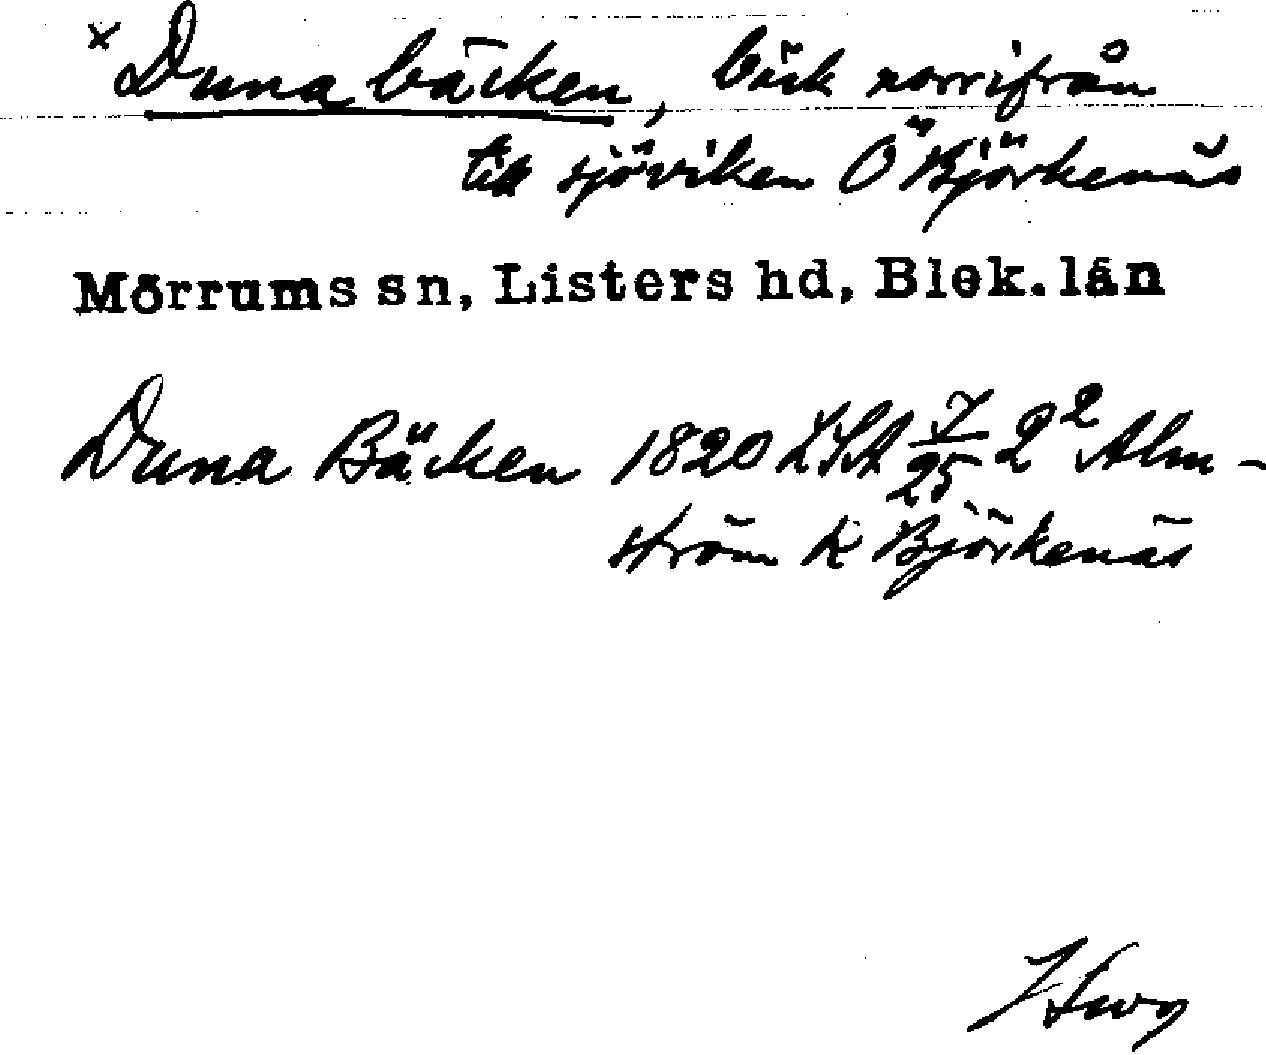 x Duna bäcken, bäck norrifrån
till sjöviken Ö Björkenäs
Mörrums sn, Listers hd, Blek. län
Duna Bäcken 1820 LSA 7/25 2² Alm-
ström K Björkenäs